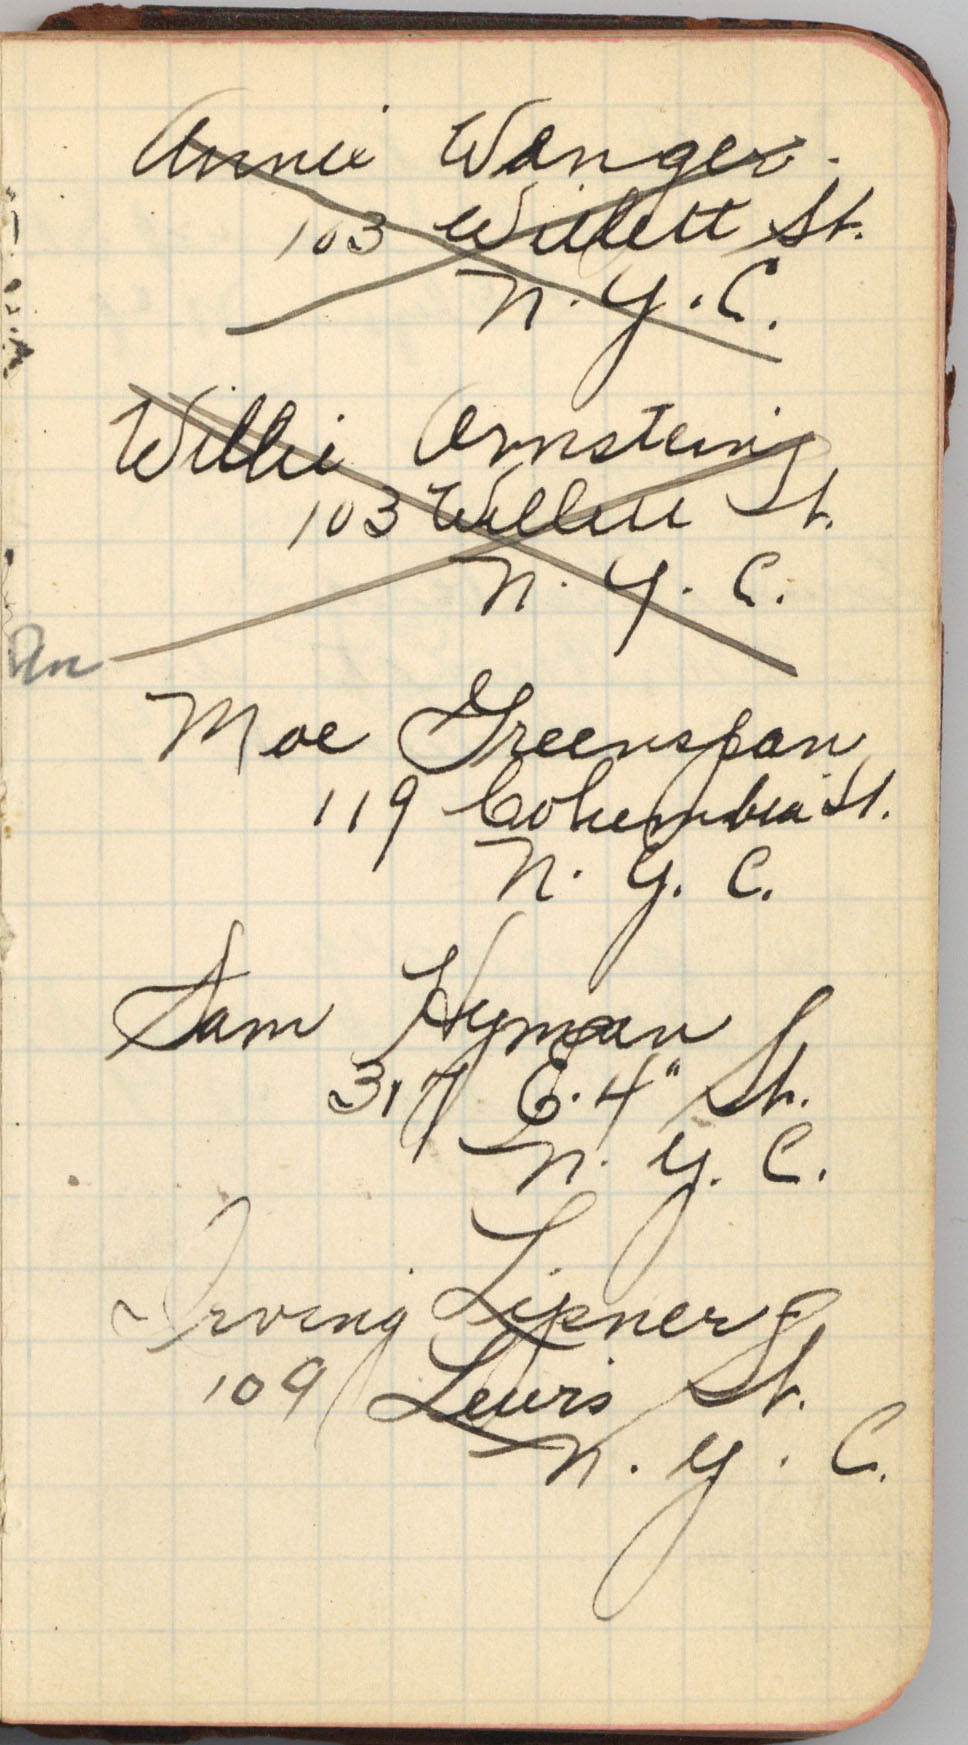 Annie Wanger.
103 Willett St.
N. Y. C.
Willie Ornstein
103 Willett St.
N. Y. C.
Moe Greenspan
119 Columbia St.
N. Y. C.
Sam Hyman
317 E. 4" St.
N. Y. C.
Irving Lipner
109 Lewis St.
N. Y. C.